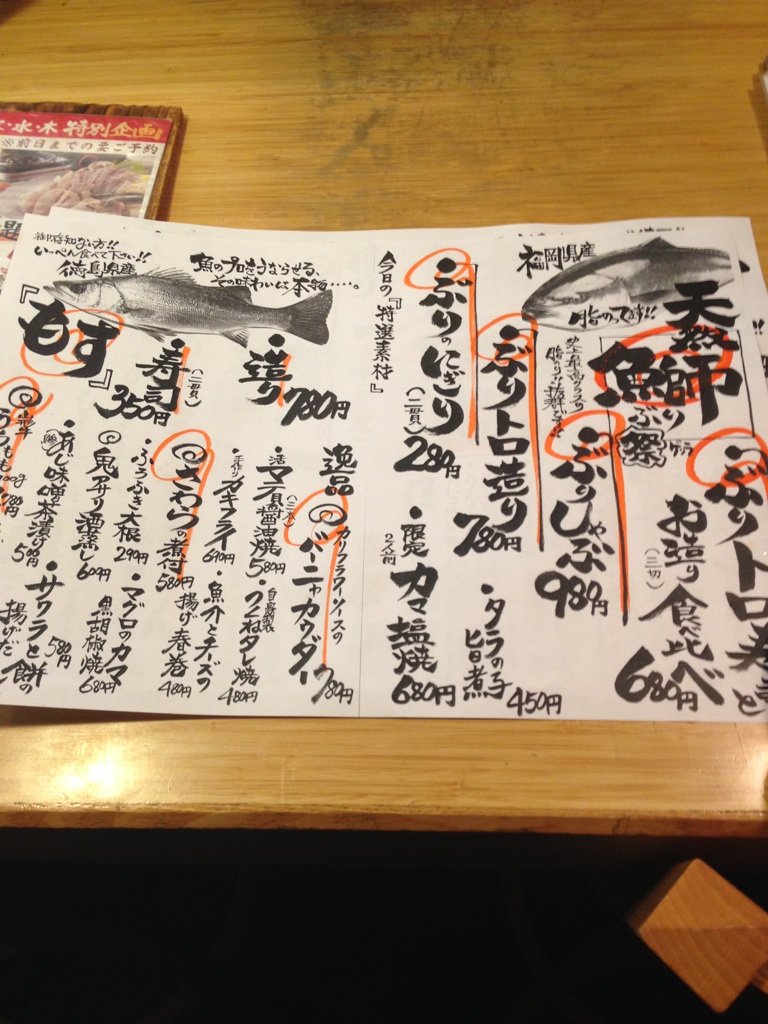 火・水・木 特別企画
※前日までの要ご予約
福岡県産
脂のってます!!
天然
魚師
ぶり祭
ぶりトロ寿司と
お造り食べ比べ
(三切)
680円
史上最高クラスの
脂のりっ抜群です!!
ぶりしゃぶ
980円
ぶりトロ造り
780円
・タラの子
旨煮
450円
ぶりのにぎり
(二貫)
280円
・限定
2人前
カマ塩焼
680円
今日の『特選素材』
魚のプロをうならせる、
その味わいは本物…。
御存知ない方!!
いっぺん食べて下さい!!
徳島県産
『もす』
造り
780円
寿司
(二貫)
350円
逸品
カリフラワーソースの
バーニャカウダー
780円
・活マテ貝醤油焼
(三本)
580円
・自家製
つくねタレ焼
480円
・手作り
カキフライ
690円
・魚介とチーズの
揚げ春巻
480円
さわらの煮付
580円
・ふろふき大根
290円
・マグロのカマ
黒胡椒焼
680円
鬼アサリ酒蒸し
600円
・サワラと餅の
揚げだ
580円
味噌茶漬け
500円
山形牛
うちもも100g